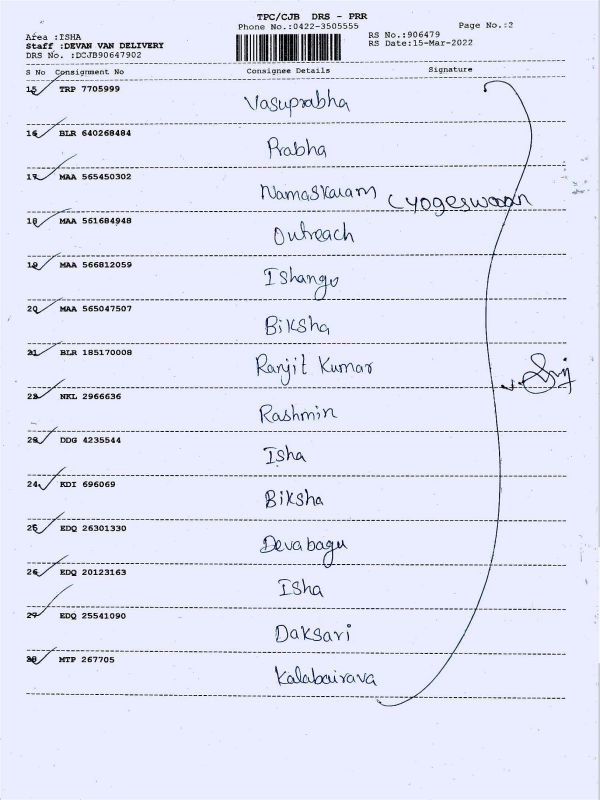 TPC/CJB DRS - PRR
Phone No.:0422-3505555
Page No.:2
Area :ISHA
RS No.:906479
Staff :DEVAN VAN DELIVERY
RS Date:15-Mar-2022
DRS No. :DCJB90647902
S No Consignment No Consignee Details Signature
15 TRP 7705999
Vasuprabha
16 BLR 640268484
Prabha
17 MAA 565450302
Namaskaram (Yogeswaran
18 MAA 561684948
Outreach
19 MAA 566812059
Ishangu
20 MAA 565047507
Biksha
21 BLR 185170008
Ranjit Kumar
22 NKL 2966636
Rashmin
23 DDG 4235544
Isha
24 KDI 696069
Biksha
25 EDQ 26301330
Devabagu
26 EDQ 20123163
Isha
27 EDQ 25541090
Daksari
28 MTP 267705
Kalabairava